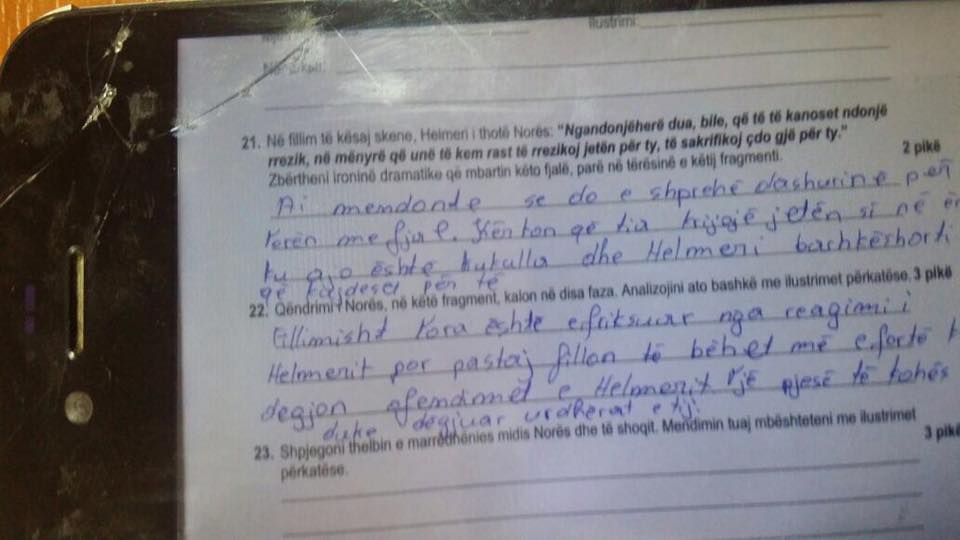 Ilustrimi:
21. Në fillim të kësaj skene, Helmeri i thotë Norës: "Ngandonjëherë dua, bile, që të të kanoset ndonjë
rrezik, në mënyrë që unë të kem rast të rrezikoj jetën për ty, të sakrifikoj çdo gjë për ty."
Zbërtheni ironinë dramatike që mbartin këto fjalë, parë në tërësinë e këtij fragmenti.
2 pikë
Ai mendonte se do e shprehë dashurinë për
me fjalë. që tia jetën si në
ku ajo është kukulla dhe Helmeri bashkëshorti
që kujdeset për të
22. Qëndrimi i Norës, në këtë fragment, kalon në disa faza. Analizojini ato bashkë me ilustrimet përkatëse. 3 pikë
Fillimisht Nora është e friksuar nga reagimi i
Helmerit por pastaj fillon të bëhet më e fortë
degjon ofendimet e Helmerit Një pjesë të kohës
duke dëgjuar urdherat e tij.
23. Shpjegoni thelbin e marrëdhënies midis Norës dhe të shoqit. Mendimin tuaj mbështeteni me ilustrimet
përkatëse.
3 pikë